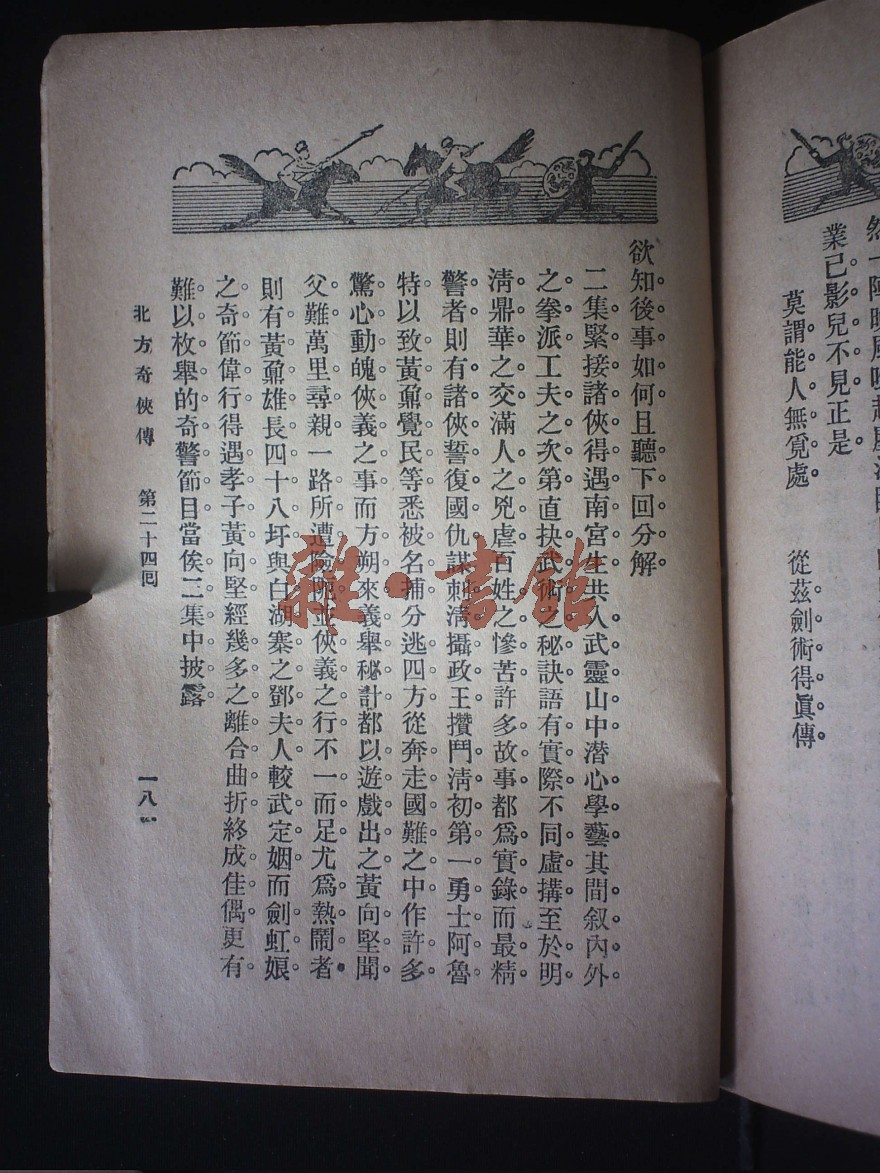 業已影兒不見正是
莫謂能人無覓處　從茲劍術得眞傳
欲知後事如何且聽下回分解
二集緊接諸俠得遇南宮生共入武靈山中潛心學藝其間叙內外
之拳派工夫之次第直抉武術之秘訣語有實際不同虛搆至於明
淸鼎華之交滿人之兇虐百姓之慘苦許多故事都爲實錄而最精
警者則有諸俠誓復國仇謀刺淸攝政王攢鬥淸初第一勇士阿魯
特以致黃鼐覺民等悉被名捕分逃四方從奔走國難之中作許多
驚心動魄俠義之事而方朔來義舉秘計都以遊戲出之黃向堅聞
父難萬里尋親一路所遭險阨並俠義之行不一而足尤爲熱鬧者
則有黃鼐雄長四十八圩與白湖寨之鄧夫人較武定姻而劍虹娘
之奇節偉行得遇孝子黃向堅經幾多之離合曲折終成佳偶更有
難以枚舉的奇警節目當俟二集中披露
北方奇俠傳　第二十四回　一八一
雜·書館